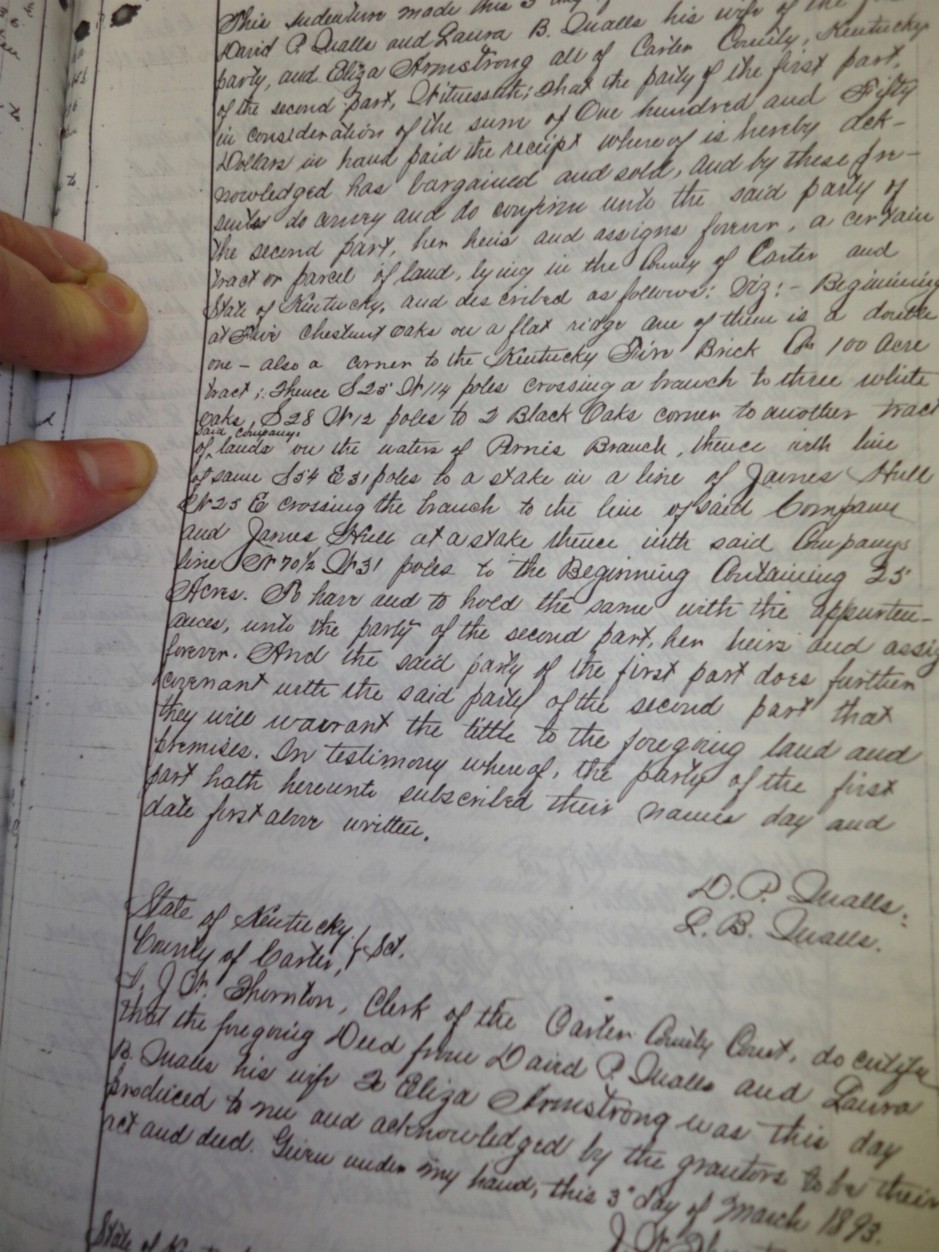 This Indenture made this 3 day of
David P. Qualls and Laura B. Qualls his wife of the
party, and Eliza Armstrong all of Carter County, Kentucky
of the second part, Witnesseth; That the party of the first part,
in consideration of the sum of One hundred and Fifty
Dollars in hand paid the receipt where of is hereby ack-
nowledged has bargained and sold, and by these pre-
sents do convey and do confirm unto the said party of
the second part, her heirs and assigns forever, a certain
tract or parcel of land, lying in the County of Carter and
State of Kentucky, and described as follows: Viz:- Beginning
at Five chestnut oaks on a flat ridge one of them is a double
one - also a corner to the Kentucky Fire Brick Co 100 Acre
tract; Thence S 25 W 114 poles crossing a branch to three white
oaks, S 28 W 12 poles to 2 Black Oaks corner to another tract
said Company
of lands on the waters of Branch, thence with line
of same S 54 E 31 poles to a stake in a line of James Hull
N 25 E crossing the branch to the line of said Company
and James Hull at a stake thence with said Companys
line N 70 1/2 W 31 poles to the Beginning Containing 25
Acres. To have and to hold the same with the appurten-
ances, unto the party of the second part, her heirs and assig
forever. And the said party of the first part does further
covenant with the said party of the second part that
they will warrant the tittle to the foregoing land and
premises. In testimony where of, the party of the first
part hath hereunto subscribed their names day and
date first above written.
D. P. Qualls.
L. B. Qualls.
State of Kentucky }
County of Carter, } Sct.
I, J. W. Thornton, Clerk of the Carter County Court, do certify
that the foregoing Deed from David P. Qualls and Laura
B. Qualls his wife To Eliza Armstrong was this day
produced to me and acknowledged by the grantors to be their
act and deed. Given under my hand, this 3" day of March 1893.
J. W.
State of